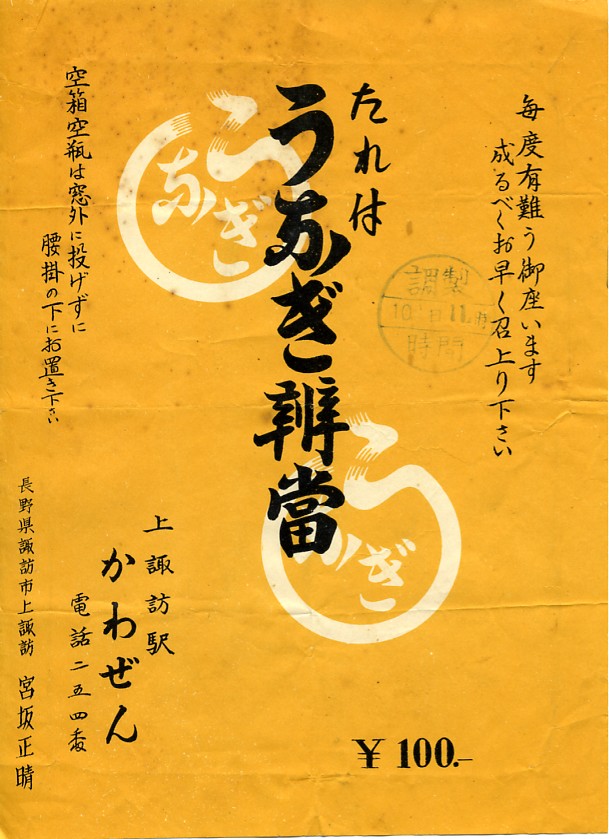 毎度有難う御座います
成るべくお早く召上り下さい
調製
10 日 11 時
時間
たれは
うなぎ辨當
うなぎ
うなぎ
空箱空瓶は窓外に投げずに
腰掛の下にお置き下さい
上諏訪駅
かわぜん
電話二五四番
長野県諏訪市上諏訪 宮坂正晴
¥100.—